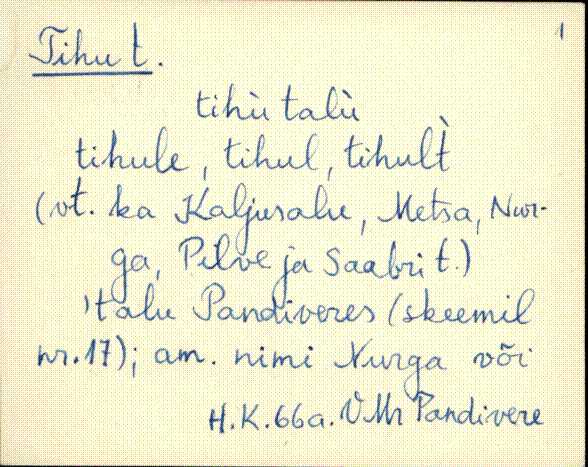 1
Tihu t.
tihù talù
tihule, tihul, tihul̀t
(vt. ka Kaljusalu, Metsa, Nur-
ga, Pilve ja Saabri t.)
'talu Pandiveres (skeemil
nr. 17); am. nimi Nurga või
H.K. 66a. VMr Pandivere